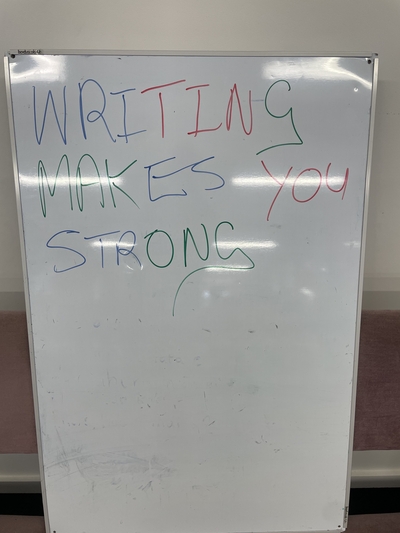 WRITING
MAKES YOU
STRONG